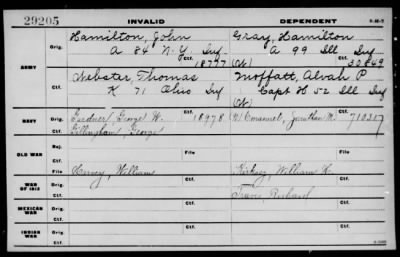 29205 INVALID DEPENDENT
ARMY
Orig. Hamilton, John Gray, Hamilton
A 84 N.Y. Inf A 99 Ill Inf
Ctf. 18777 (W) 30849
Orig. Webster, Thomas Moffatt, Alvah P
K 71 Ohio Inf Capt H 52 Ill Inf
Ctf. (W)
NAVY
Orig. Gardner George W. 18978 Jonathan M. 710307
Ctf. Gillingham, George
OLD WAR
Rej. File File
Ctf.
WAR OF 1812
Orig. William William H.
Ctf. Travis, Richard
MEXICAN WAR
Orig.
Ctf.
INDIAN WAR
Orig.
Ctf.